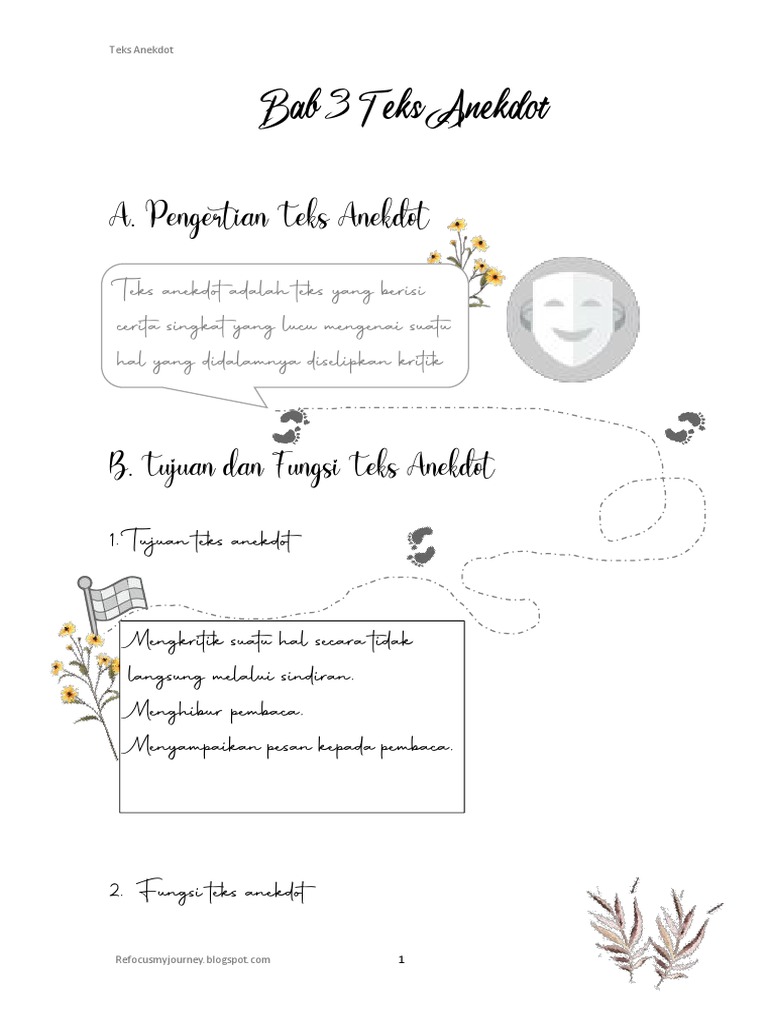 Teks Anekdot
Bab 3 Teks Anekdot
A. Pengertian Teks Anekdot
Teks anekdot adalah teks yang berisi
cerita singkat yang lucu mengenai suatu
hal yang didalamnya diselipkan kritik
B. Tujuan dan Fungsi Teks Anekdot
1. Tujuan teks anekdot
Mengkritik suatu hal secara tidak
langsung melalui sindiran.
Menghibur pembaca.
Menyampaikan pesan kepada pembaca.
2. Fungsi teks anekdot
Refocusmyjourney.blogspot.com 1